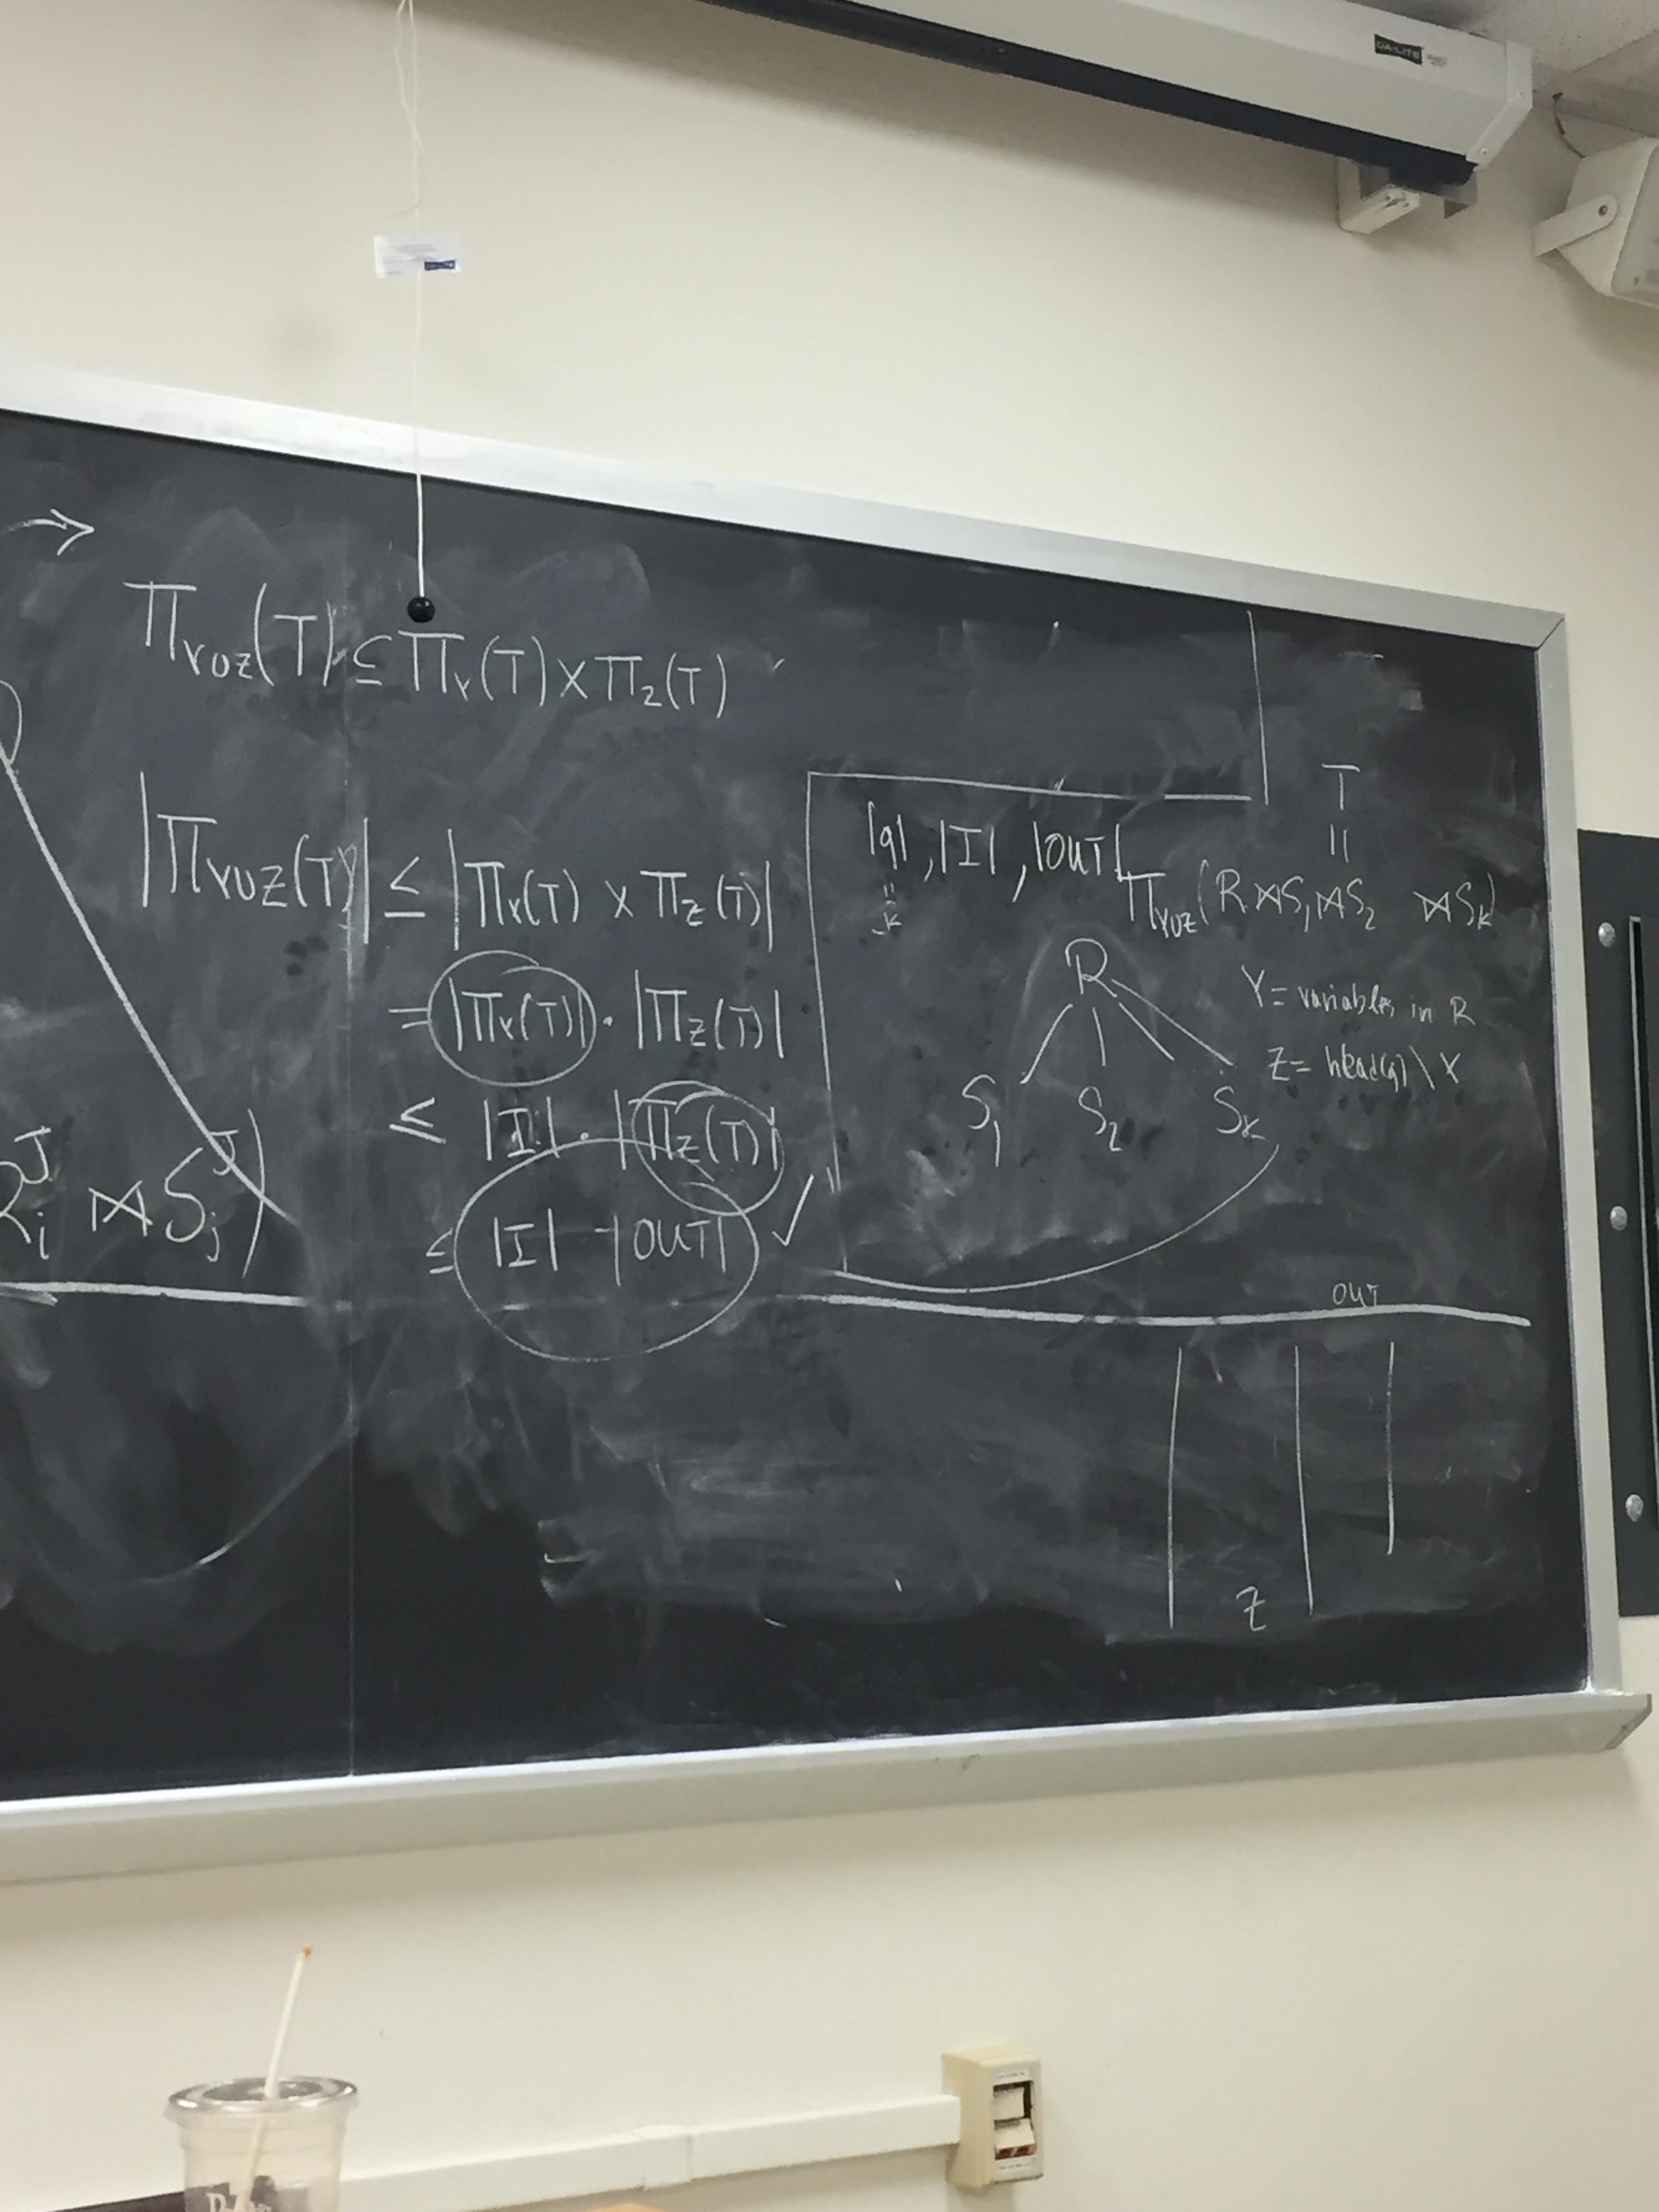 DA-LITE
→
Π_{Y∪Z}(T) ⊆ Π_Y(T) × Π_Z(T)
|Π_{Y∪Z}(T)| ≤ |Π_Y(T) × Π_Z(T)|
= |Π_Y(T)| · |Π_Z(T)|
≤ |I| · |Π_Z(T)|
≤ |I| · |OUT| ✓
R_i^J ⋈ S_j^J)
|q|, |I|, |OUT|
=
k
T
=
Π_{Y∪Z}(R ⋈ S_1 ⋈ S_2 ⋈ S_k)
R
S_1 S_2 S_k
Y = variables in R
Z = head(q) \ Y
OUT
Z